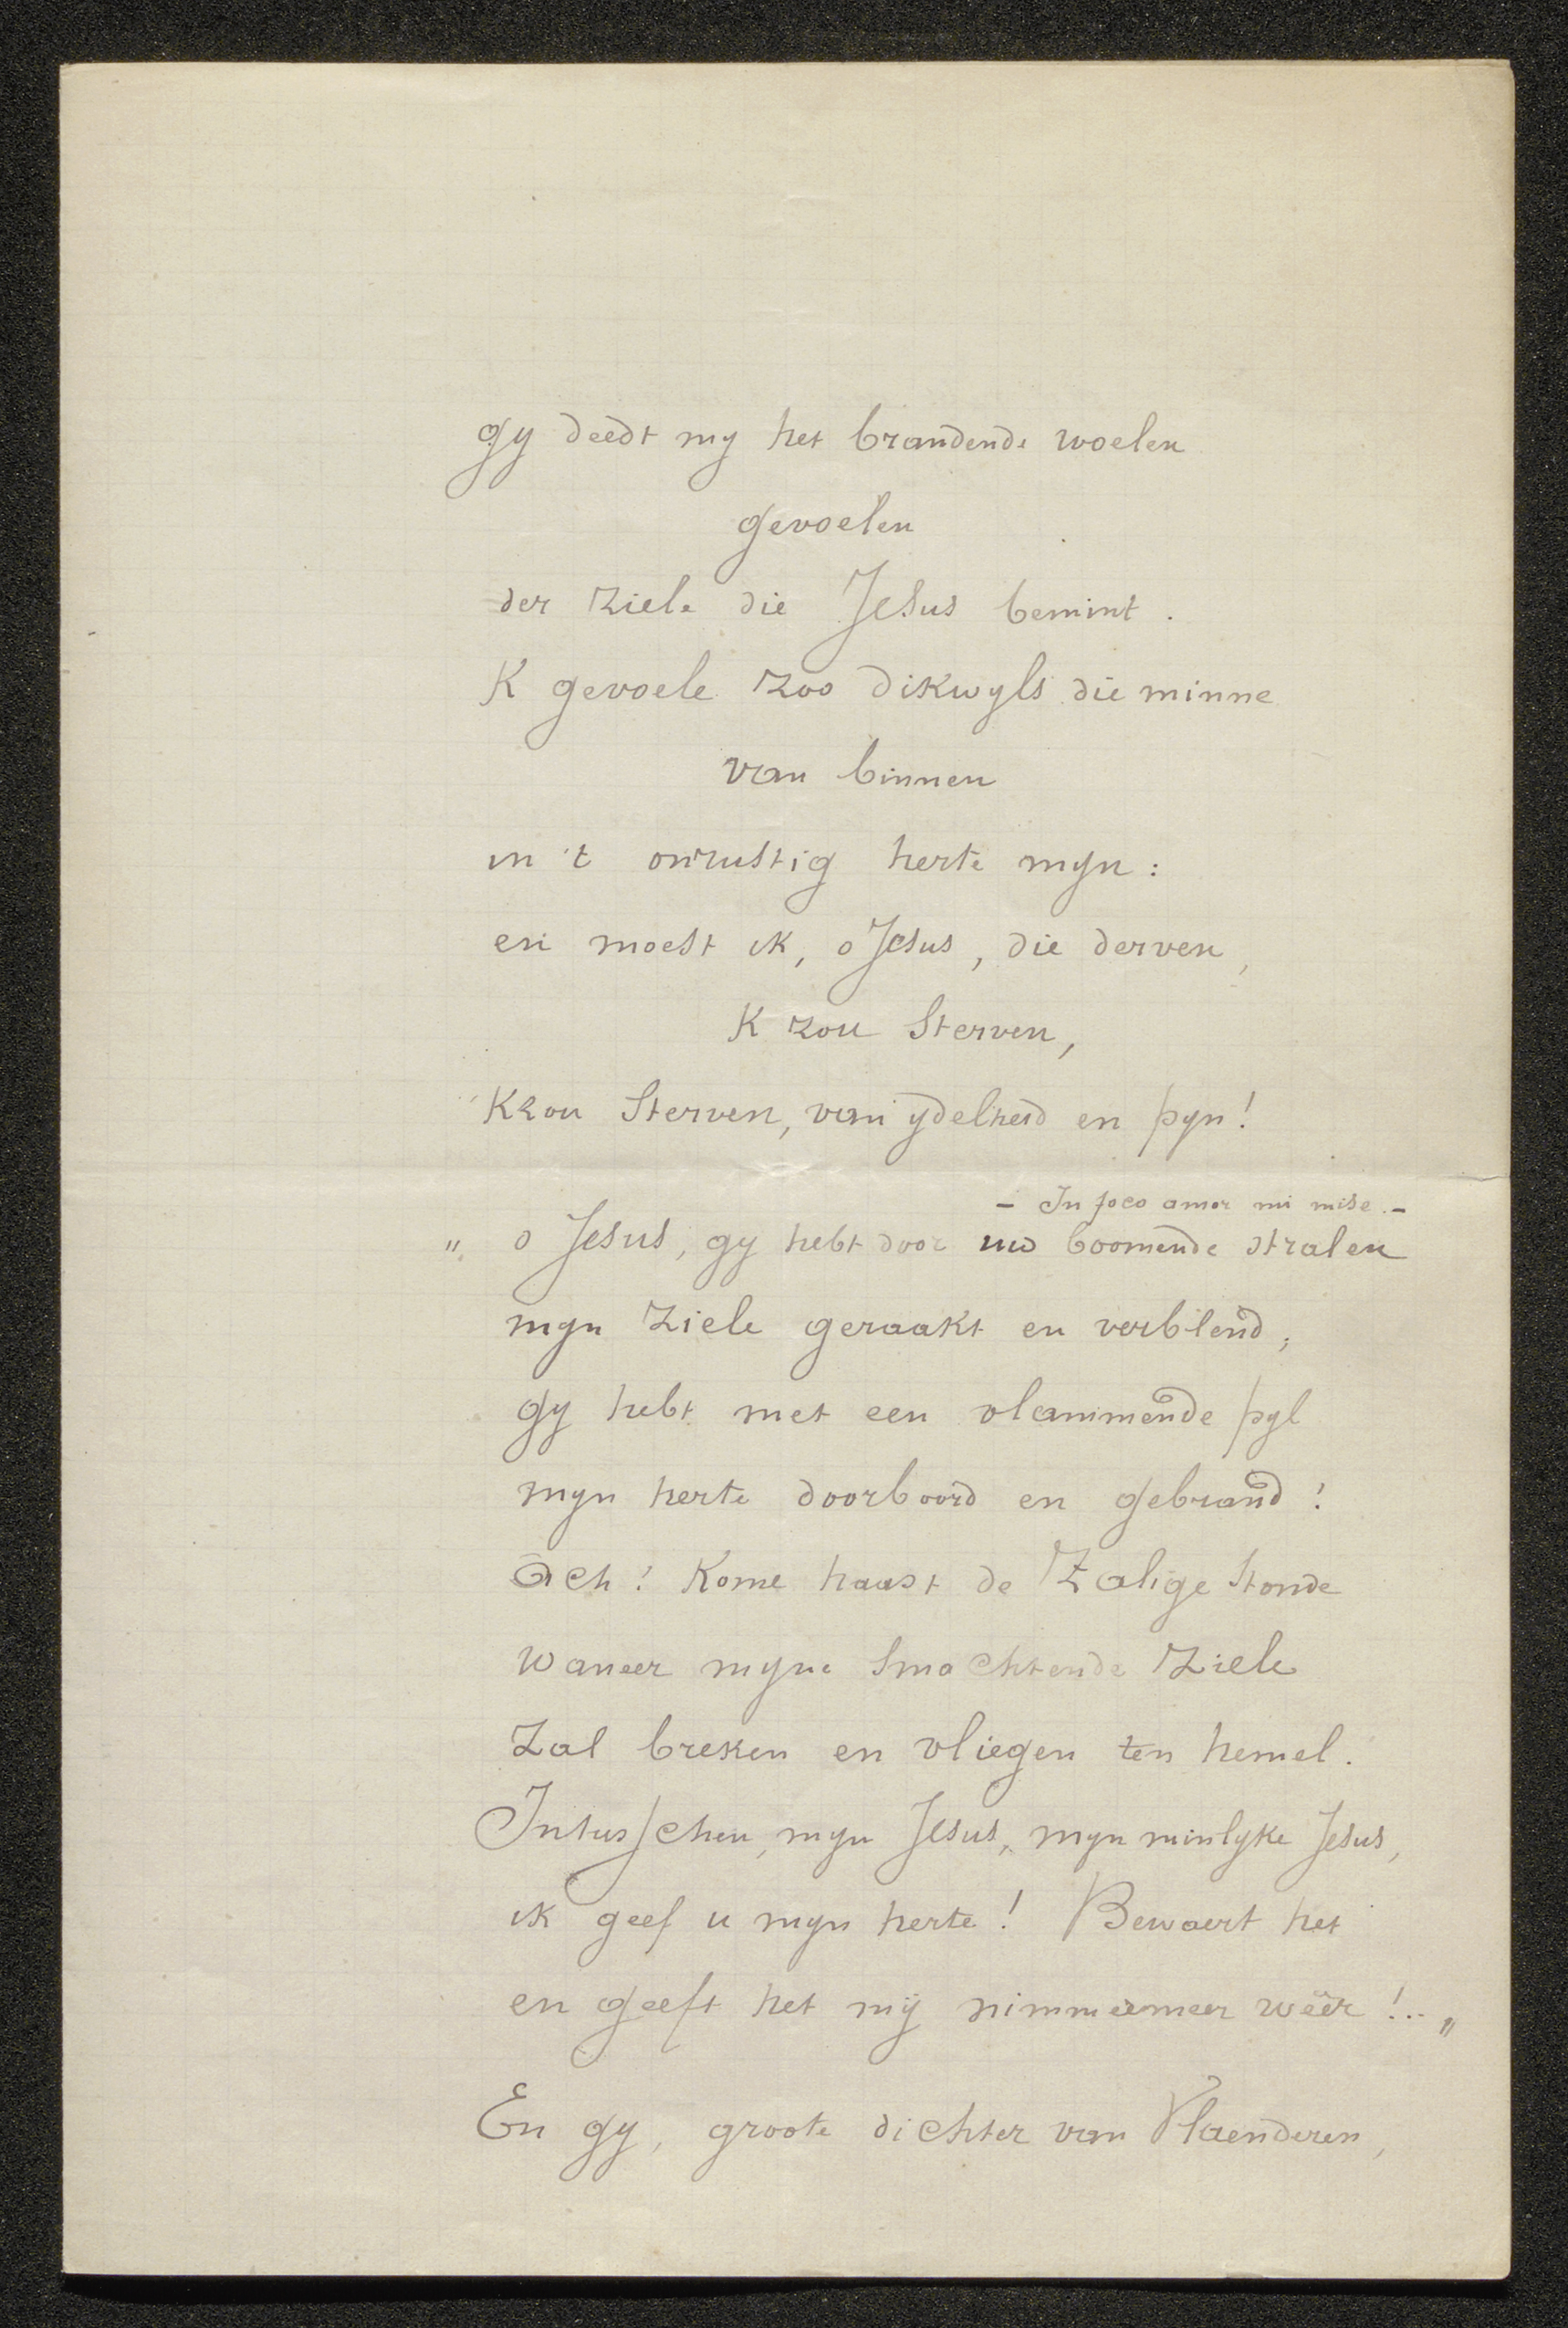 gy deedt my het brandende woelen
gevoelen
der ziele die Jesus bemint.
K gevoele zoo dikwyls die minne
van binnen
in 't onrustig herte myn:
en moest ik, o Jesus, die derven,
K zou sterven,
'K zou sterven, van ydelheid en pyn!
- In foco amor mi mise. -
„ o Jesus, gy hebt door uw boomende stralen
myn ziele geraakt en verblend;
gy hebt met een vlammende pyl
myn herte doorboord en gebrand!
Ach! Kome haast de zalige stonde
waneer myne smachtende ziele
zal breken en vliegen ten hemel.
Intusschen, myn Jesus, myn minlyke Jesus,
ik geef u myn herte! Bewaert het
en geeft het mÿ nimmeemeer wêer!.. „
En gy, groote dichter van Vlaenderen,